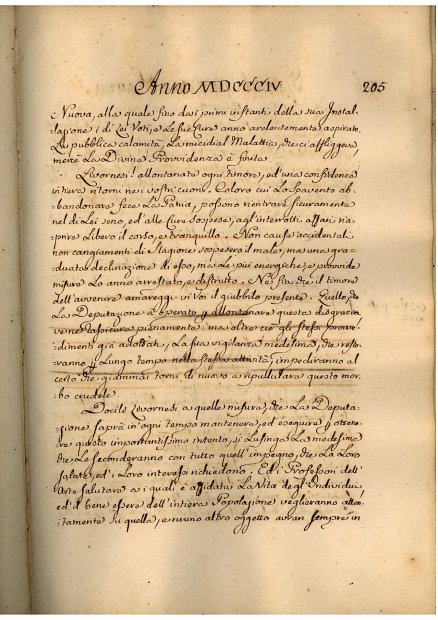 Anno MDCCCIV 205
Nuova, alla quale fino dai primi instanti della sua Instal-
lazione i di Lei Voti, e Le sue Cure anno ardentemente aspirato.
La pubblica calamità, La micidial Malattia, che ci affliggeva
mercè La Divina Provvidenza è finita.
Livornesi! allontanate ogni timore, ed una confidenza
intiera ritorni nei vostri cuori. Coloro cui Lo Spavento ab-
bandonare fece La Patria, possono rientrare sicuramente
nel di Lei seno, ed alle cure sospese, agl'interrotti affari ria-
prire Libero il corso, e tranquillo. Non cause accidentali
non cangiamenti di Stagione sospesero il male, ma una gra-
duata declinazione di esso, ma Le più energiche, e provvide
misure Lo anno arrestato, e distrutto. Nè sia che il timore
dell'avvenire amareggi in Voi il giubbilo presente. Quello, che
La Deputazione à operato per allontanare questa disgrazia
venne
pienamente: ma oltre che gli stessi provve-
dimenti già adottati, La sua vigilanza medesima, che reste-
ranno per Lungo tempo nella stessa attività, impediranno al
certo che giammai torni di nuovo a ripullulare questo mor-
bo crudele.
Docili Livornesi a quelle misure, che La Deputa-
zione saprà in ogni tempo mantenere, ed eseguire per ottene-
re questo importantissimo intento, si Lusinga La medesima
che La seconderanno con tutto quell'impegno, che La Loro
salute, ed i Loro interessi richiedono. Ed i Professori dell'
Arte salutare a i quali è affidata La Vita degl'Individui
ed il bene essere dell'intiera Popolazione veglieranno atten-
tamente su quella, e niuno altro oggetto avran sempre in